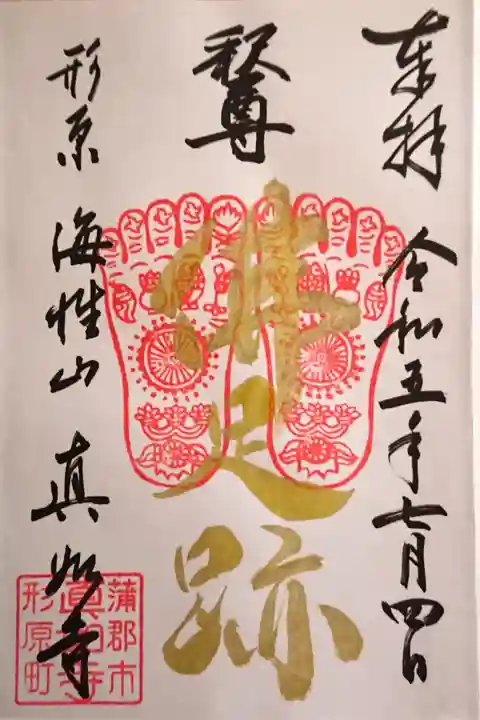 奉拝 令和五年七月四日
釈尊
佛足跡
形原 海性山 真如寺
蒲郡市
眞如寺
形原町